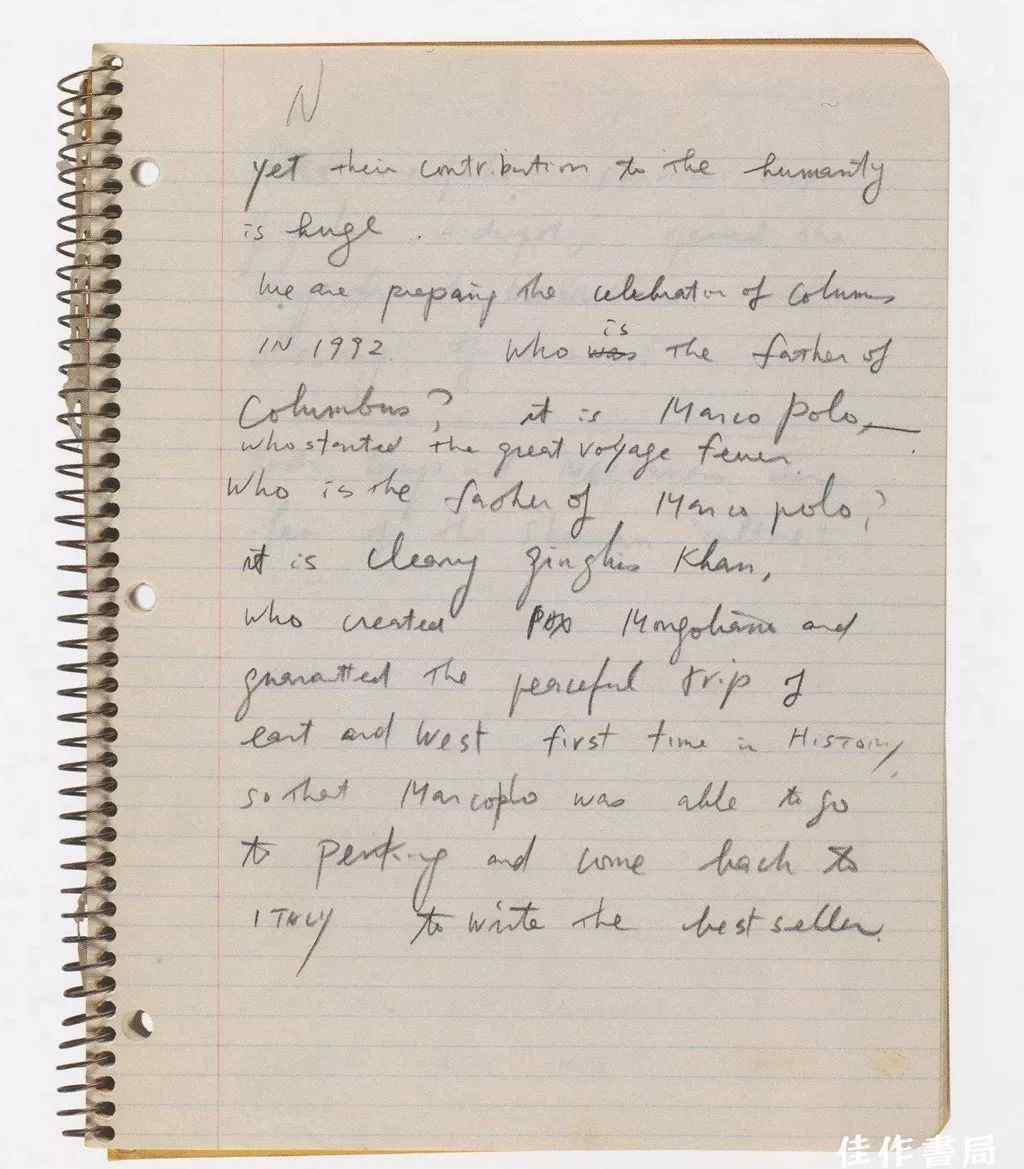 N
yet their contribution to the humanity
is huge.
We are preparing the celebration of Columbus
IN 1992 Who was is the father of
Columbus? it is Marco polo,
who started the great voyage fever.
Who is the father of Marco polo?
it is clearly Zinghis Khan,
who created Pax Mongoliana and
guaranteed the peaceful trip of
east and West first time in HISTORY,
so that Marcoplo was able to go
to Perking and come back to
ITALY to write the best seller.
佳作書局